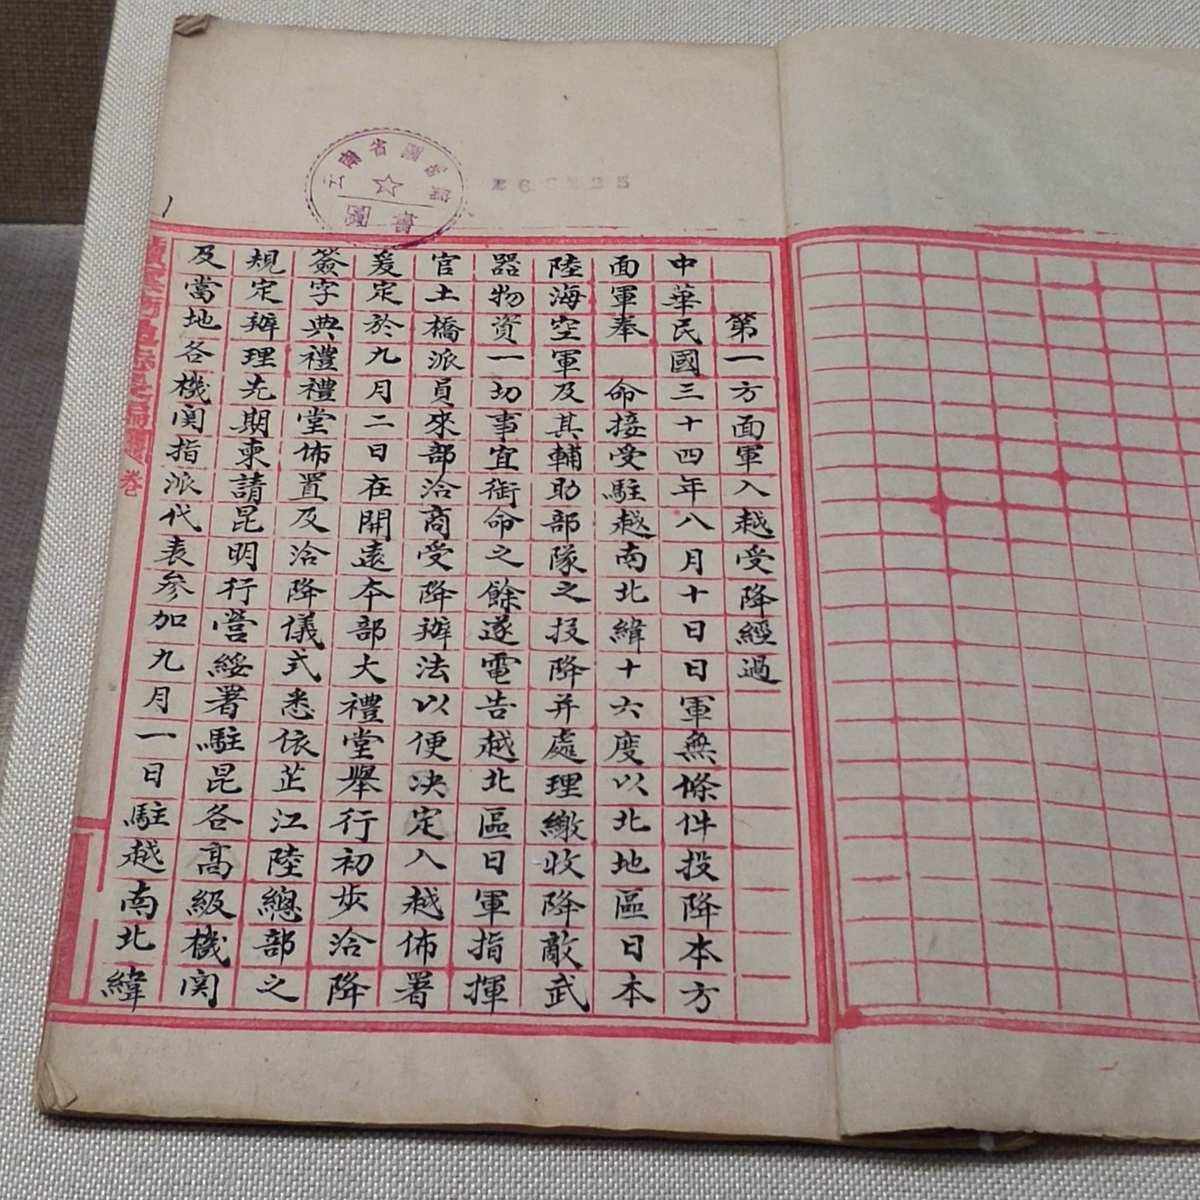 云南省圖書館
圖書
第一方面軍入越受降經過
中華民國三十四年八月十日日軍無條件投降本方
面軍奉　命接受駐越南北緯十六度以北地區日本
陸海空軍及其輔助部隊之投降并處理繳收降敵武
器物資一切事宜銜命之餘遂電告越北區日軍指揮
官土橋派員來部洽商受降辦法以便决定入越佈署
爰定於九月二日在開遠本部大禮堂舉行初步洽降
簽字典禮禮堂佈置及洽降儀式悉依芷江陸總部之
規定辦理先期柬請昆明行營綏署駐昆各高級機関
及當地各機関指派代表參加九月一日駐越南北緯
卷